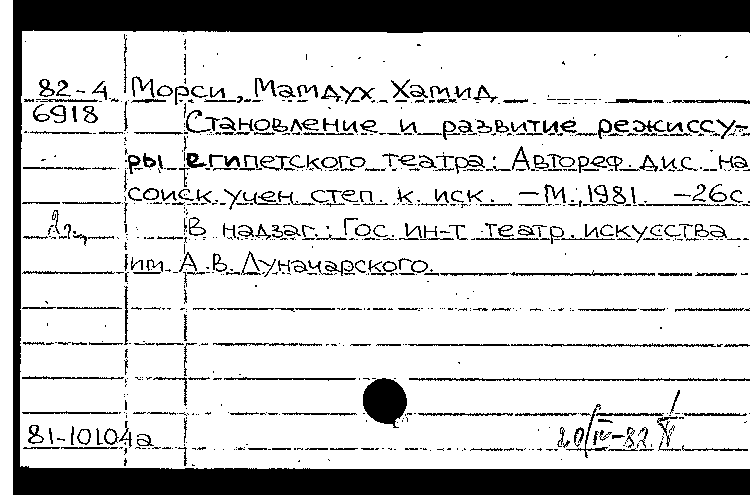 82-4 Морси, Мамдух Хамид
6918 Становление и развитие режиссу-
ры египетского театра: Автореф. дис. на
соиск. учен. степ. к. иск. – М., 1981. – 26с.
В надзаг.: Гос. ин-т театр. искусства
им. А.В. Луначарского.
81-10104а 20/IV-82.